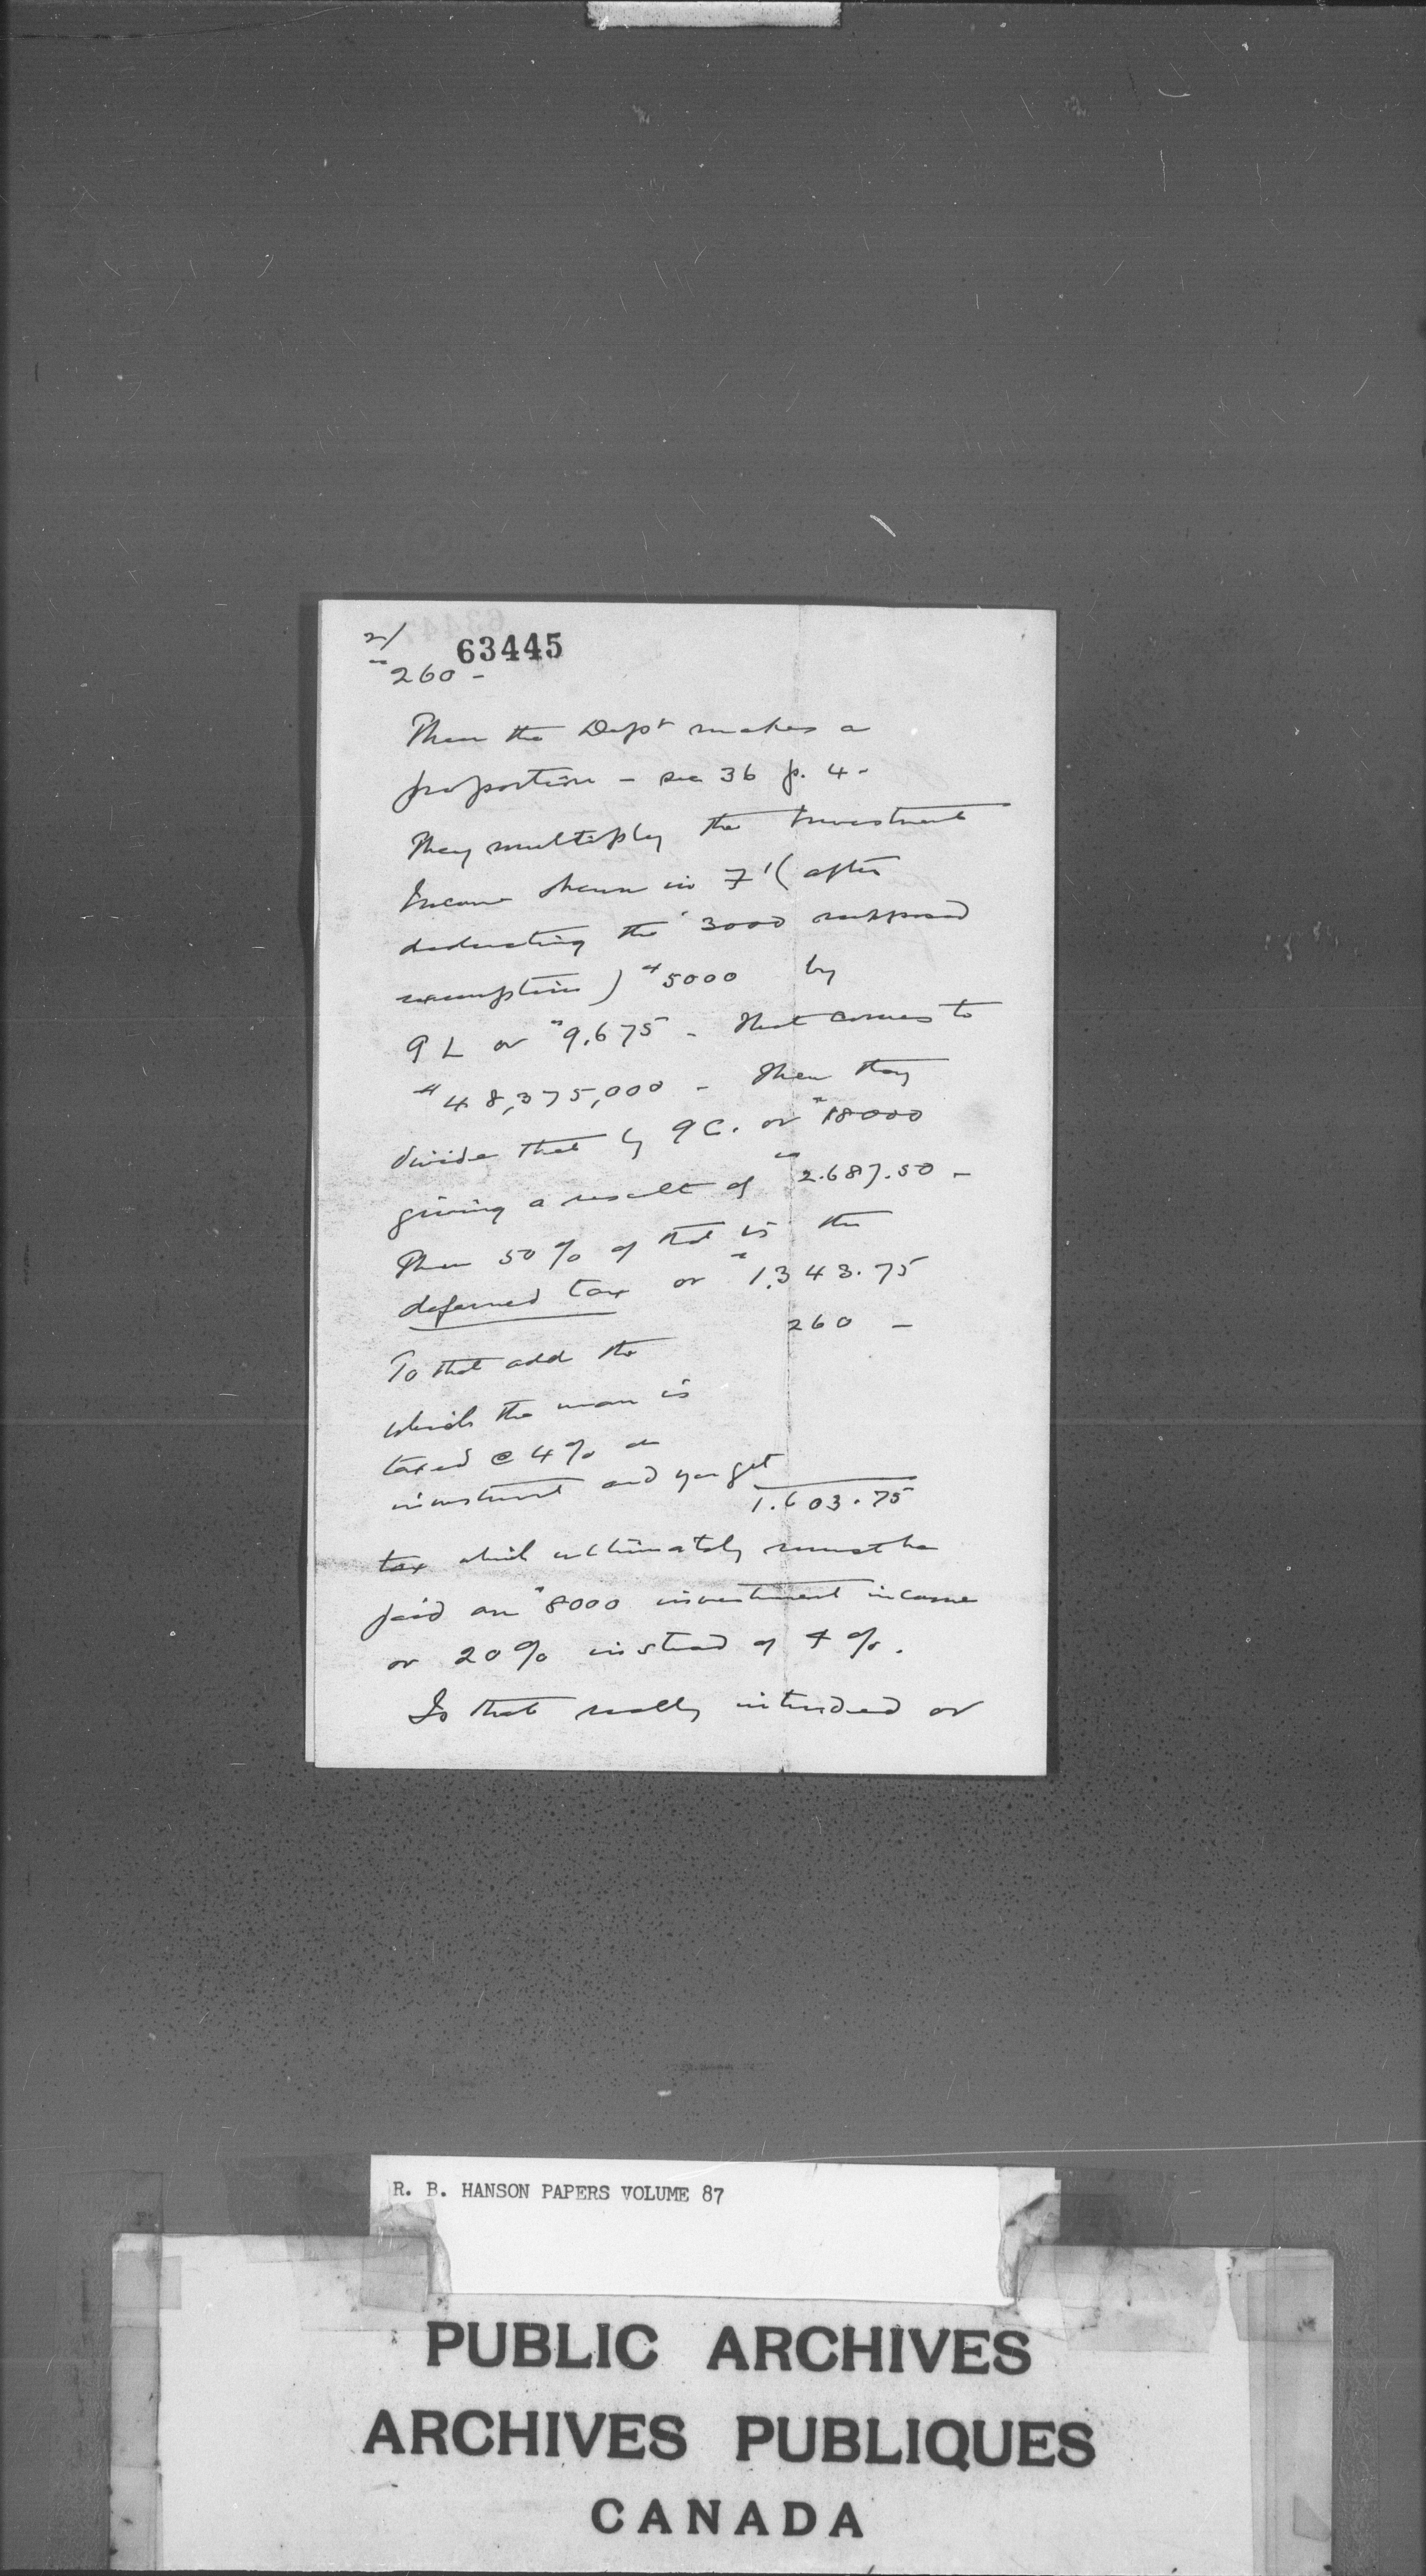 2/
63445
"260 -
Then the Dept makes a
proportion - see 36 p. 4 -
They multiply the Investment
Income shown in 7 (after
deducting the 3000 supposed
exemption) "5000 by
9 L or "9,675 - that comes to
"48,375,000 - Then they
divide that by 9C. or "18000
giving a result of "2.687.50 -
Then 50% of that is the
deferred tax or "1,343.75
To that add the 260 -
which the man is
taxed @ 4% on
investment and you get
1.603.75
tax which ultimately must be
paid on "8000 investment income
or 20% instead of 4%.
Is that really intended or
R. B. HANSON PAPERS VOLUME 87
PUBLIC ARCHIVES
ARCHIVES PUBLIQUES
CANADA